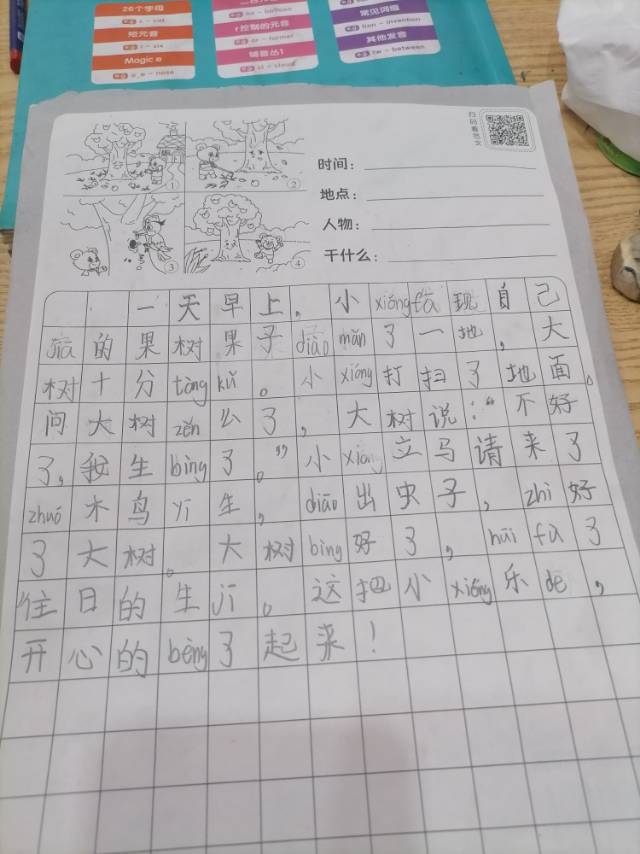 26个字母
短元音
Magic e
a_e - nose
r控制的元音
辅音丛1
cl - cloud
常见词缀
tion - invention
其他发音
tw - between
扫码看范文
① ②
时间:
地点:
③ ④
人物:
干什么:
一天早上,小xióng fā现自己
jiā的果树果子diào mǎn了一地,大
树十分tòng kǔ。小xióng打扫了地面。
问大树zěn么了,大树说:“不好
了,我生bìng了。”小xióng立马请来了
zhuó木鸟yī生,diāo出虫子,zhì好
了大树。大树bìng好了,huī fù了
往日的生jī。这把小xióng乐de,
开心的bèng了起来!